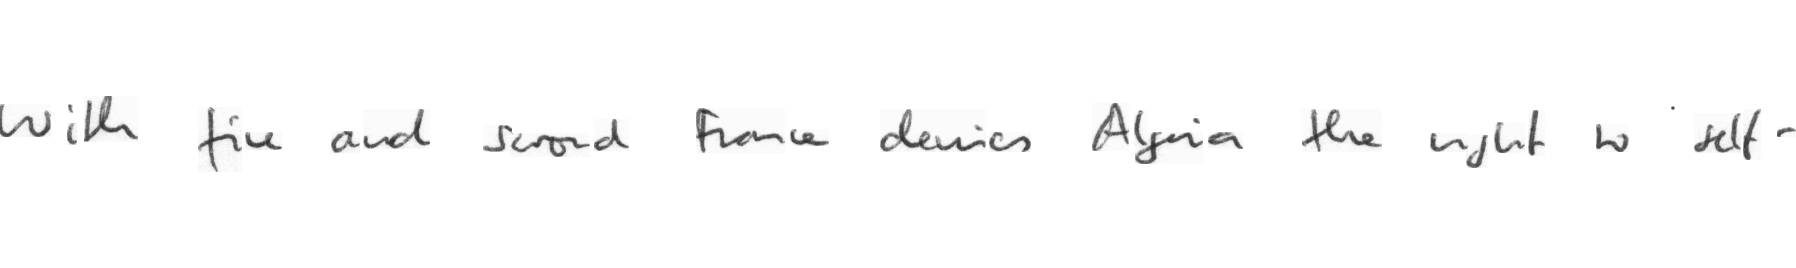 With fire and sword France denies Algeria the right to self-